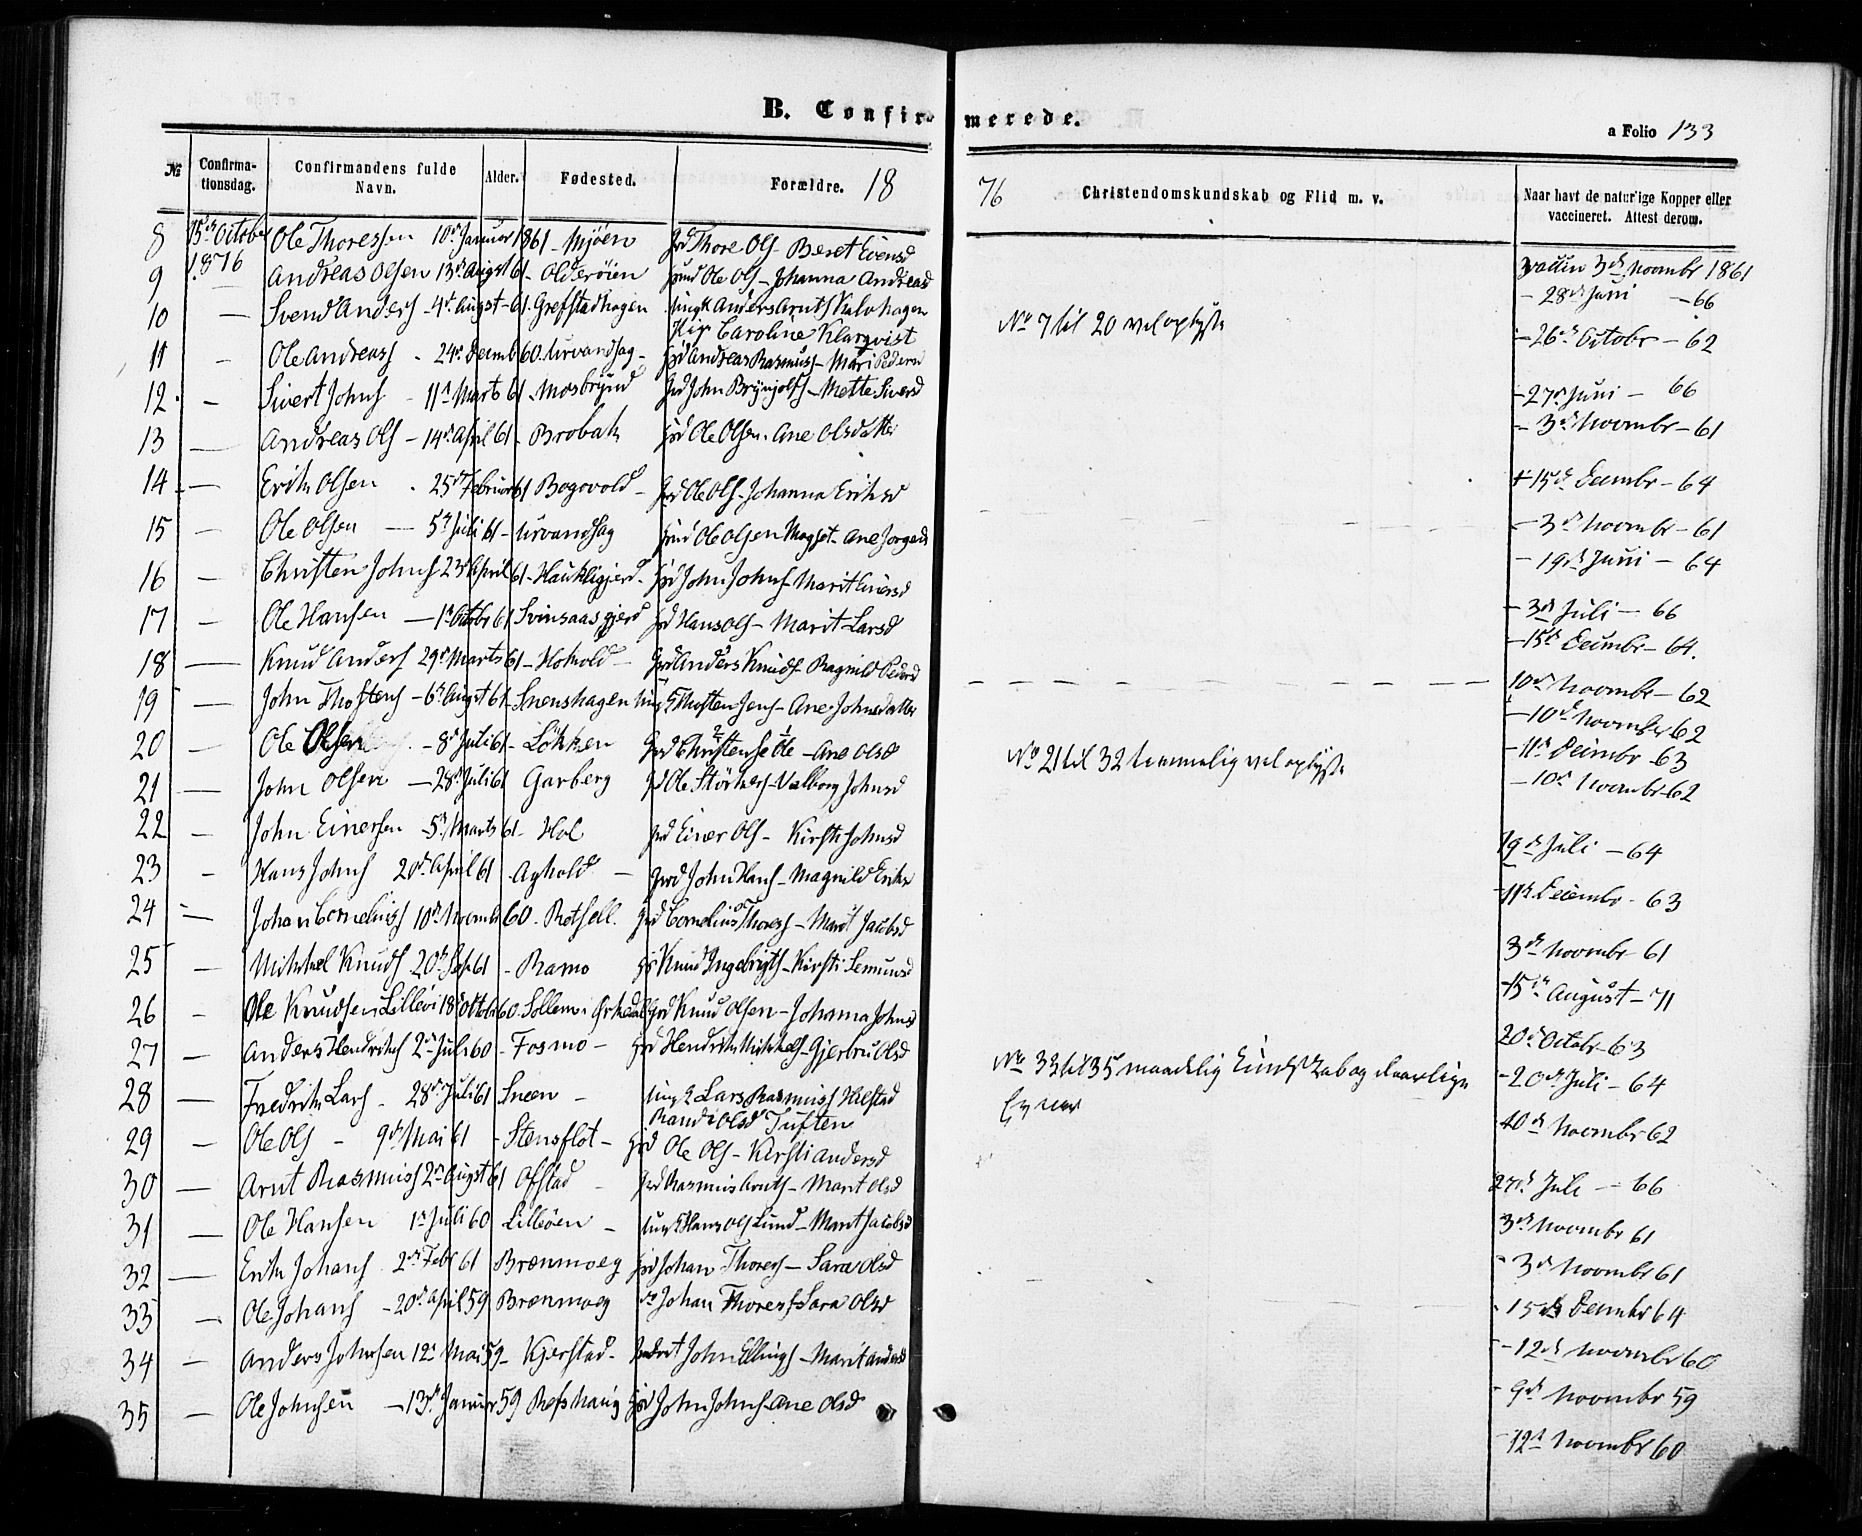 B. Confirmerede.
a Folio 133
№ Confirmationsdag. Confirmandens fulde Navn. Alder. Fødested. Forældre. 18 76 Christendomskundskab og Flid m. v. Naar havt de natur'ige Kopper eller vaccineret. Attest derom.
8 15de October 1876 Ole Thoressen 10de Januar 1861 - Mjøen Thore Ols - Beret Eversd
9 — Andreas Olsen 13de Augst 61 - Olderøien Ole Ols - Johanna Andreasd 3de Novmbr 1861
10 — Svend Anders - 4de Augst - 61. Grefstadhagen Ungk Anders Arnts Kalvhagen - 28de Juni - 66
Pige Caroline Klarqvist
No 7 til 20 vel oplyste
11 — Ole Andreass - 24de Decmb 60. Urvandsag - Andreas Rasmuss - Mari Pedersd - 26de Octobr - 62
12. — Sivert Johns - 11te Marts 61 - Mosbrynd John Brynjolfs - Mette Siversd - 27de Juni - 66
13 — Andreas Ols - 14de April 61 - Brobak Ole Olsen. Ane Olsdatter - 3de Novmbr - 61
14 — Erik Olsen - 25de Februar 61 Bogovold - Ole Ols - Johanna Eriksd 15de Decmbr - 64
15 — Ole Olsen — 5te Juli 61 - Urvandsag Ole Olsen - Ane Jørgensd - 3de Novmbr - 61
16 — Christen Johns 23de April 61 - Haukligjerd - John Johns - Marit Eversd - 19de Juni - 64
17 — Ole Hansen — 1ste Octbr 61 Svinsaasgjerd Hans Ols - Marit Larsd - 3de Juli - 66
18 — Knud Anders 29de Marts 61 - Hokold - Anders Knuds - Ragnild Pedersd - 15de Decmbr - 64.
19 — John Thostens - 6te Augst 61 - Snenshagen Thosten Jens - Ane Johnsdatter 10de Novmbr - 62
20 — Ole Olsen - 8de Juli 61 - Løkken Christense Ole - Ane Olsd - 10de Novmbr 62
No 21 til 32 temmelig vel oplyste
- 11te Decmbr 63
21 — John Olsen - 28de Juli 61 Garberg Ole Størkers - Valborg Johnsd - 10de Novmbr 62
22 — John Einersen - 5te Marts 61 - Hol Einer Ols - Kirsti Johnsd 19de Juli - 64
23 — Hans Johns 20de April 61 - Aghold - John Hans - Magnild Eriks - 11te Decembr - 63
24 — Johan Cornelius 10de Novmb 60 - Rotsell. Cornelius Thores - Marit Jacobsd 3de Novmbr 61
25 — Mikkel Knuds 20de Sept 61 - Ramo Knud Ingebrigts - Kirsti Semunsd - 15de August - 71
26 — Ole Knudsen Lilleøi 18de Oktbr 60. Sollem i Ørkedal Knud Olsen - Johanna Johnsd 20de Octobr 63
27 — Anders Hendriks 2den Juli 60 - Fosmo - Hendrik Mikkels - Gjerbru Olsd - 20de Juli - 64
No 33 til 35 maadelig Kundskab og daarlige Evner
28 — Fredrik Lars - 28de Juli 61 Sneen - Ungk Lars Rasmuss Halstad 10de Novmbr 62
Randi Olsd Tuften
29 — Ole Ols - 9de Mai 61 - Stensflot - Ole Ols - Kirsti Andersd
30 — Arnt Rasmuss 2den Augst 61 Ofstad - Rasmus Arnts - Marit Olsd 27de Juli - 66
31 — Ole Hansen 1ste Juli 60 Lilleøen - Ungk Hans Ols Lund - Marit Jacobsd 3de Novmbr 61
32 — Erik Johans 2den Febr 61 Brænmoeg Johan Thores - Sara Olsd - 3de Novmbr 61
33 — Ole Johans - 20de April 59 Brænmoeg do Johan Thores Sara Olsd - 15de Decmbr 64
34 — Anders Johnsen 12te Mai 59 - Kjerstad - John Ellings - Marit Andersd - 12te Novmbr 60
35 — Ole Johnsen - 13de Januar 59 Refshaug John Johns - Ane Olsd - 9de Novmbr 59
- 12te Novmbr 60